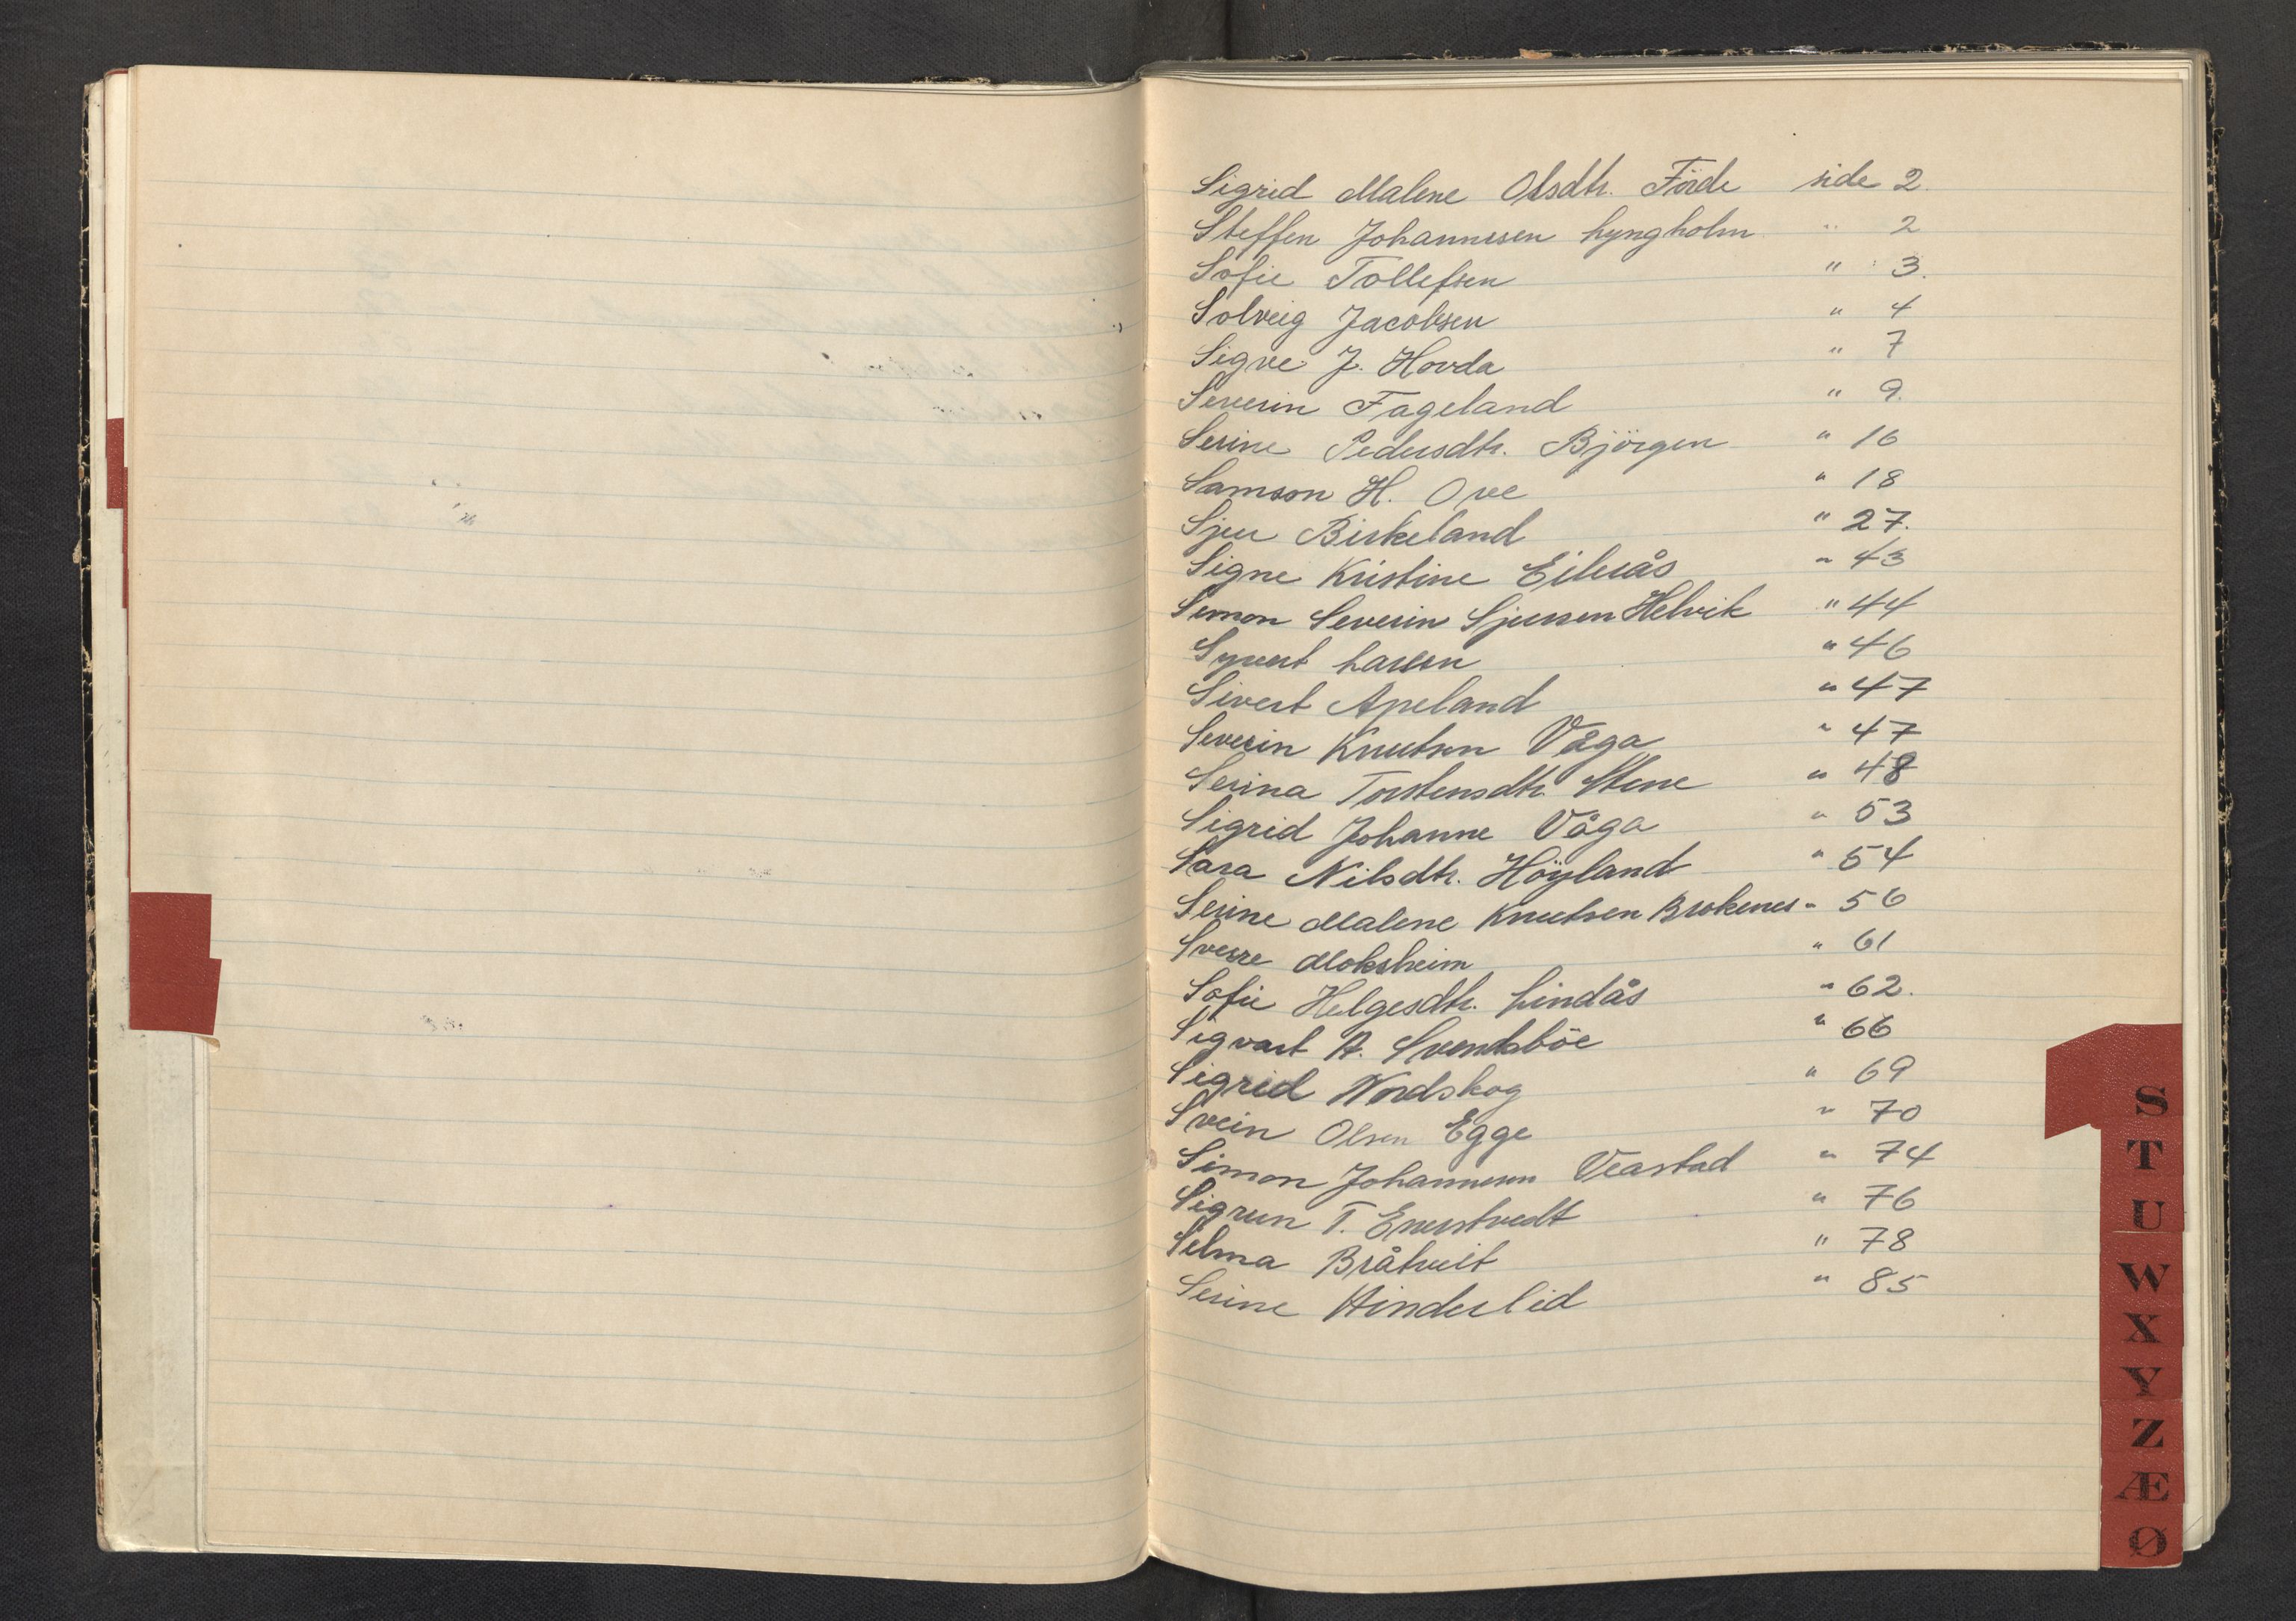 Sigrid Malene Olsdtr. Förde side 2.
Steffen Johannesen Lyngholm " 2
Sofie Tollefsen " 3.
Solveig Jacobsen " 4
Sigve J. Hovda " 7
Severin Fageland " 9.
Serine Pedersdtr. Björgen " 16
Samson H. Ove " 18
Sjur Birkeland " 27.
Signe Kristine Eilerås " 43
Simon Severin Sjursen Helvik " 44
Syvert Larsen " 46
Sivert Apeland " 47
Severin Knutsen Våga " 47
Serina Torstensdtr. Stene " 48
Sigrid Johanne Våga " 53
Sara Nilsdtr. Höyland " 54
Serine Malene Knutsen Brokenes " 56
Sverre Moksheim " 61
Sofie Helgesdtr. Lindås " 62.
Sigvart A. Svendsböe " 66
Sigrid Nordskog " 69
Svein Olsen Egge " 70
Simon Johannesen Veastad " 74
Sigrun T. Enerstvedt " 76
Selma Bråtveit " 78
Serine Hinderlid " 85
S
T
U
W
X
Y
Z
Æ
Ø